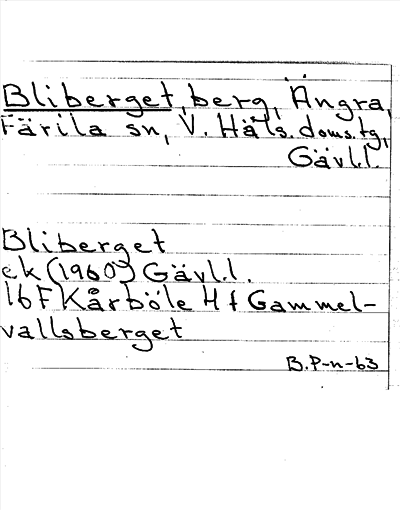 Bliberget, berg, Ängra,
Färila sn, V. Häls. doms.tg,
Gävl.l.
Bliberget
ek (1960) Gävl.l.
16F Kårböle 4f Gammel-
vallsberget
B.P-n-63